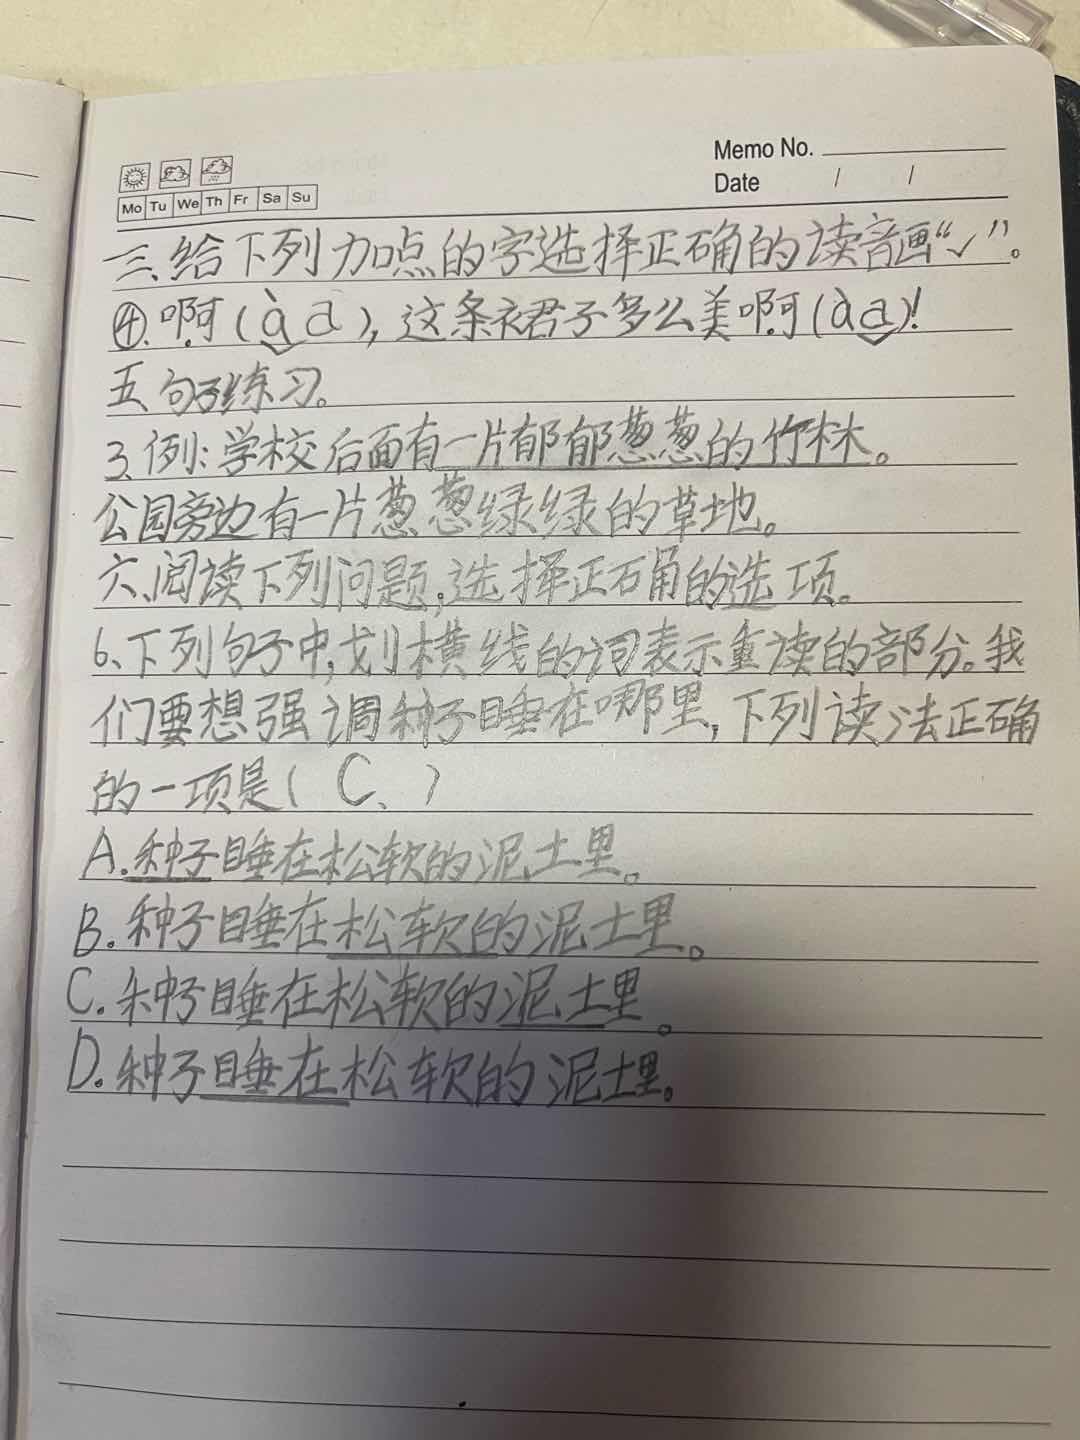 Memo No.
Date / /
Mo Tu We Th Fr Sa Su
三、给下列加点的字选择正确的读音画“✓”。
④.啊(à a),这条裙子多么美啊(à a)!
五、句子练习。
3、例:学校后面有一片郁郁葱葱的竹林。
公园旁边有一片葱葱绿绿的草地。
六、阅读下列问题,选择正确的选项。
6、下列句子中,划横线的词表示重读的部分。我
们要想强调种子睡在哪里,下列读法正确
的一项是( C、 )
A.种子睡在松软的泥土里。
B.种子睡在松软的泥土里。
C.种子睡在松软的泥土里。
D.种子睡在松软的泥土里。